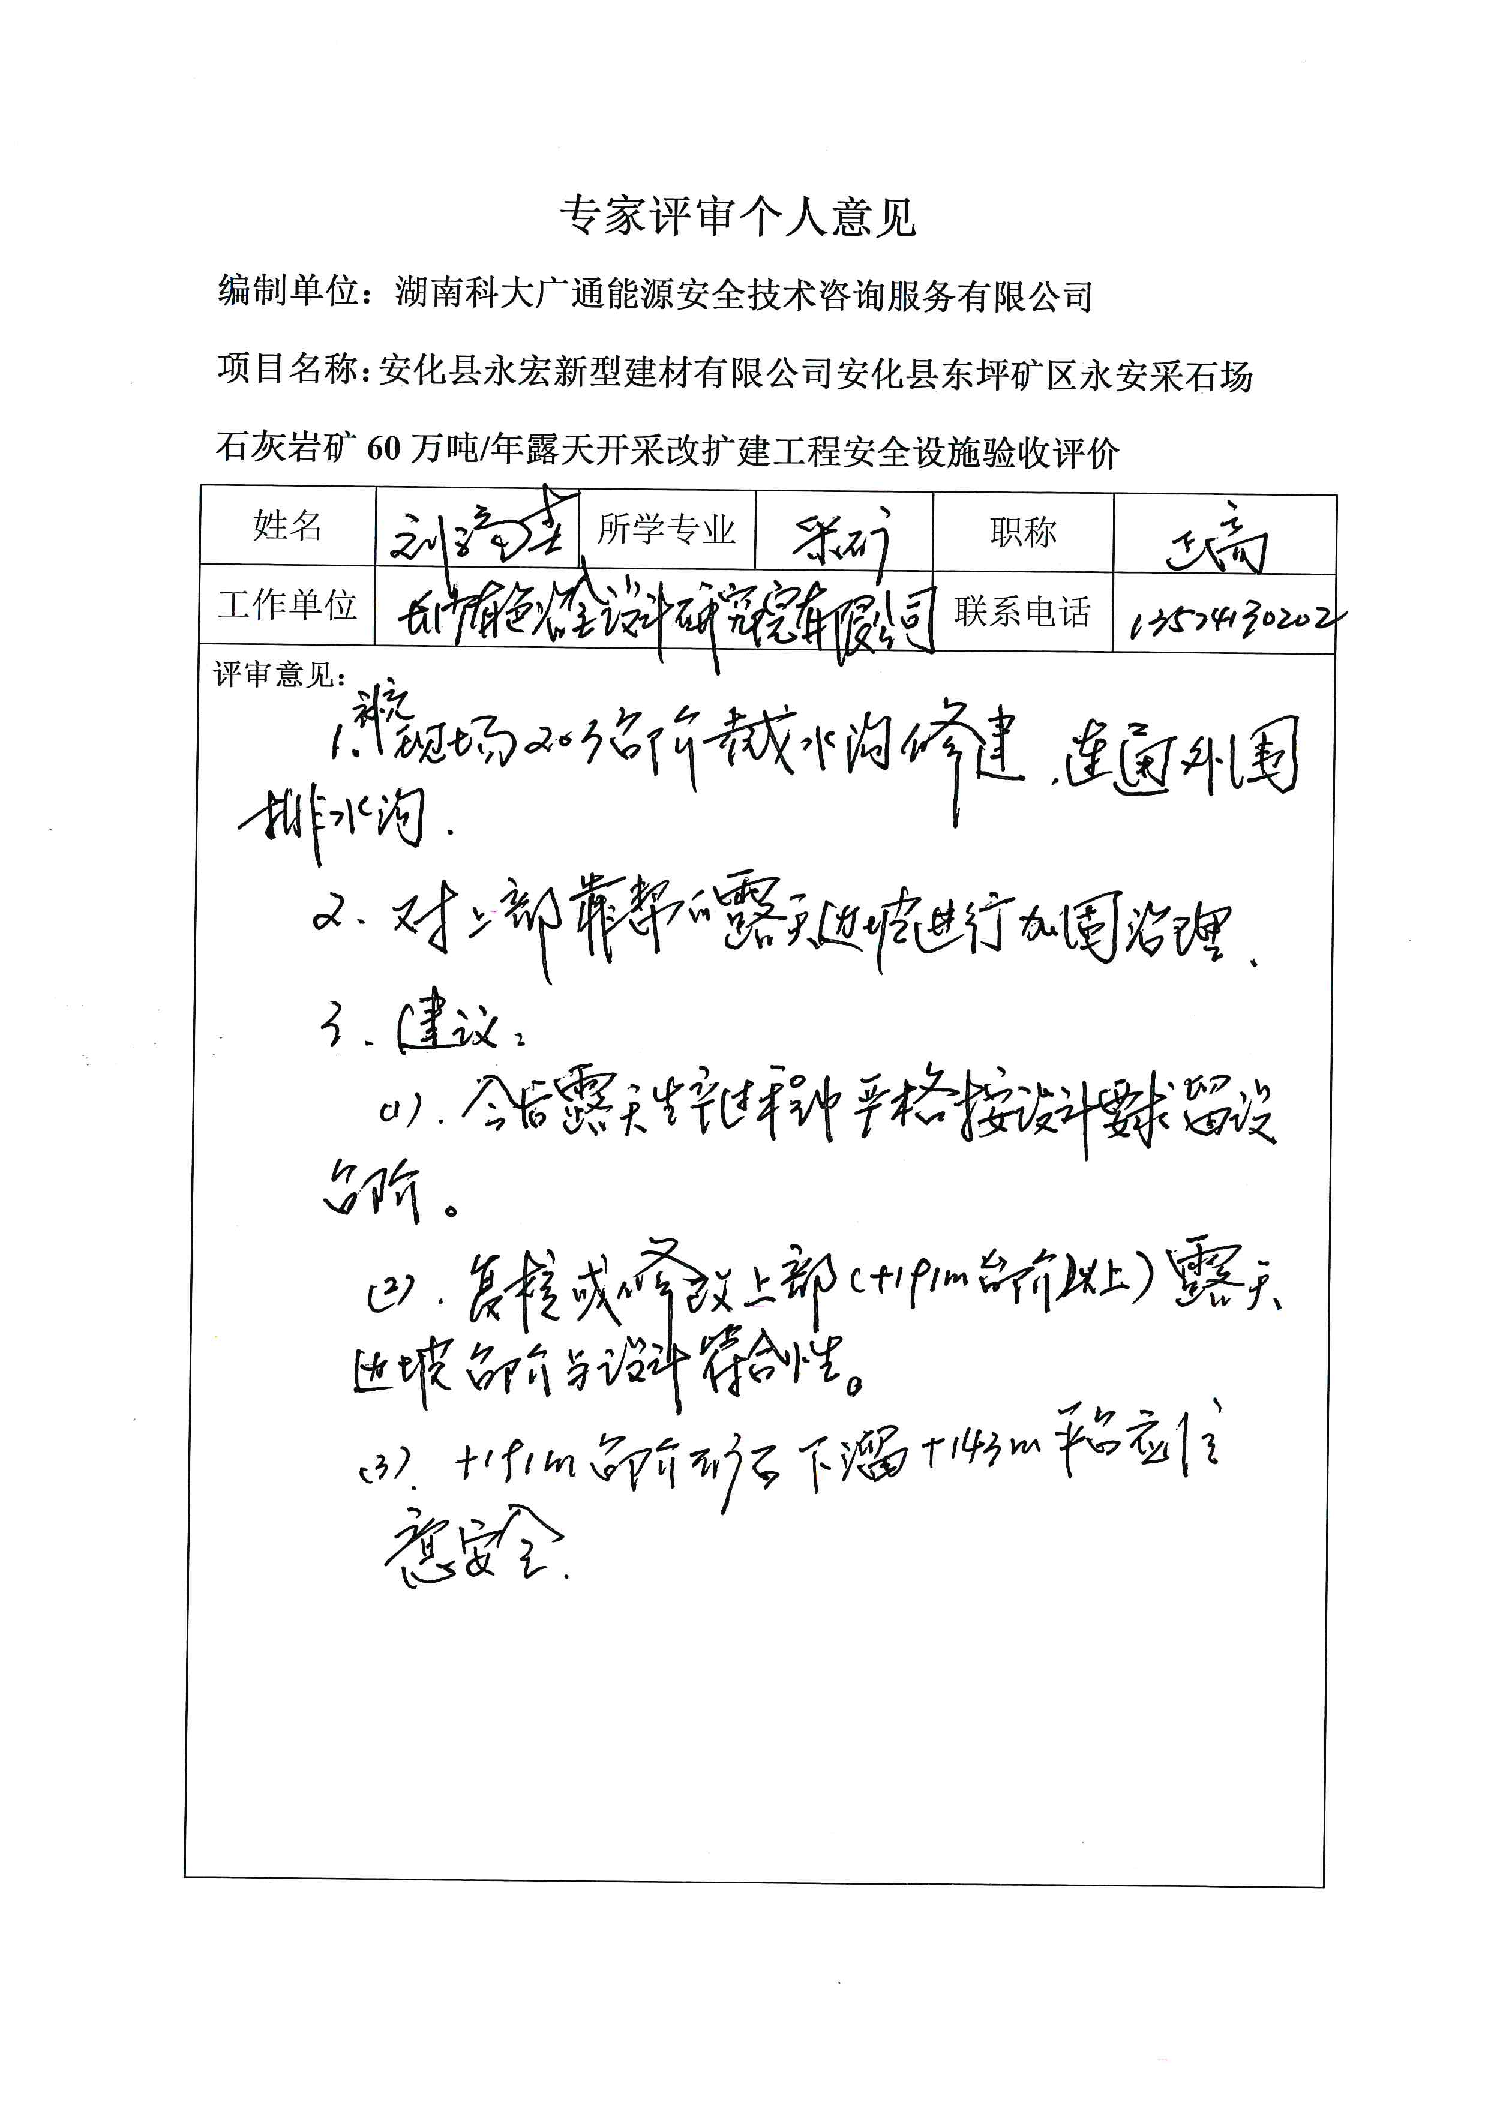 专家评审个人意见
编制单位：湖南科大广通能源安全技术咨询服务有限公司
项目名称：安化县永宏新型建材有限公司安化县东坪矿区永安采石场
石灰岩矿 60 万吨/年露天开采改扩建工程安全设施验收评价
姓名 刘 所学专业 采矿 职称 正高
工作单位 长沙有色冶金设计研究院有限公司 联系电话 13574130202
评审意见：
1、补充现场203台阶截水沟修建，连通外围
排水沟.
2、对上部靠帮的露天边坡进行加固治理、
3、建议：
(1). 今后露天生产过程中严格按设计要求留设
台阶。
(2). 复核或修改上部(+191m台阶以上)露天
边坡台阶与设计符合性。
(3). +191m台阶矿石下溜+143m平台应注
意安全.